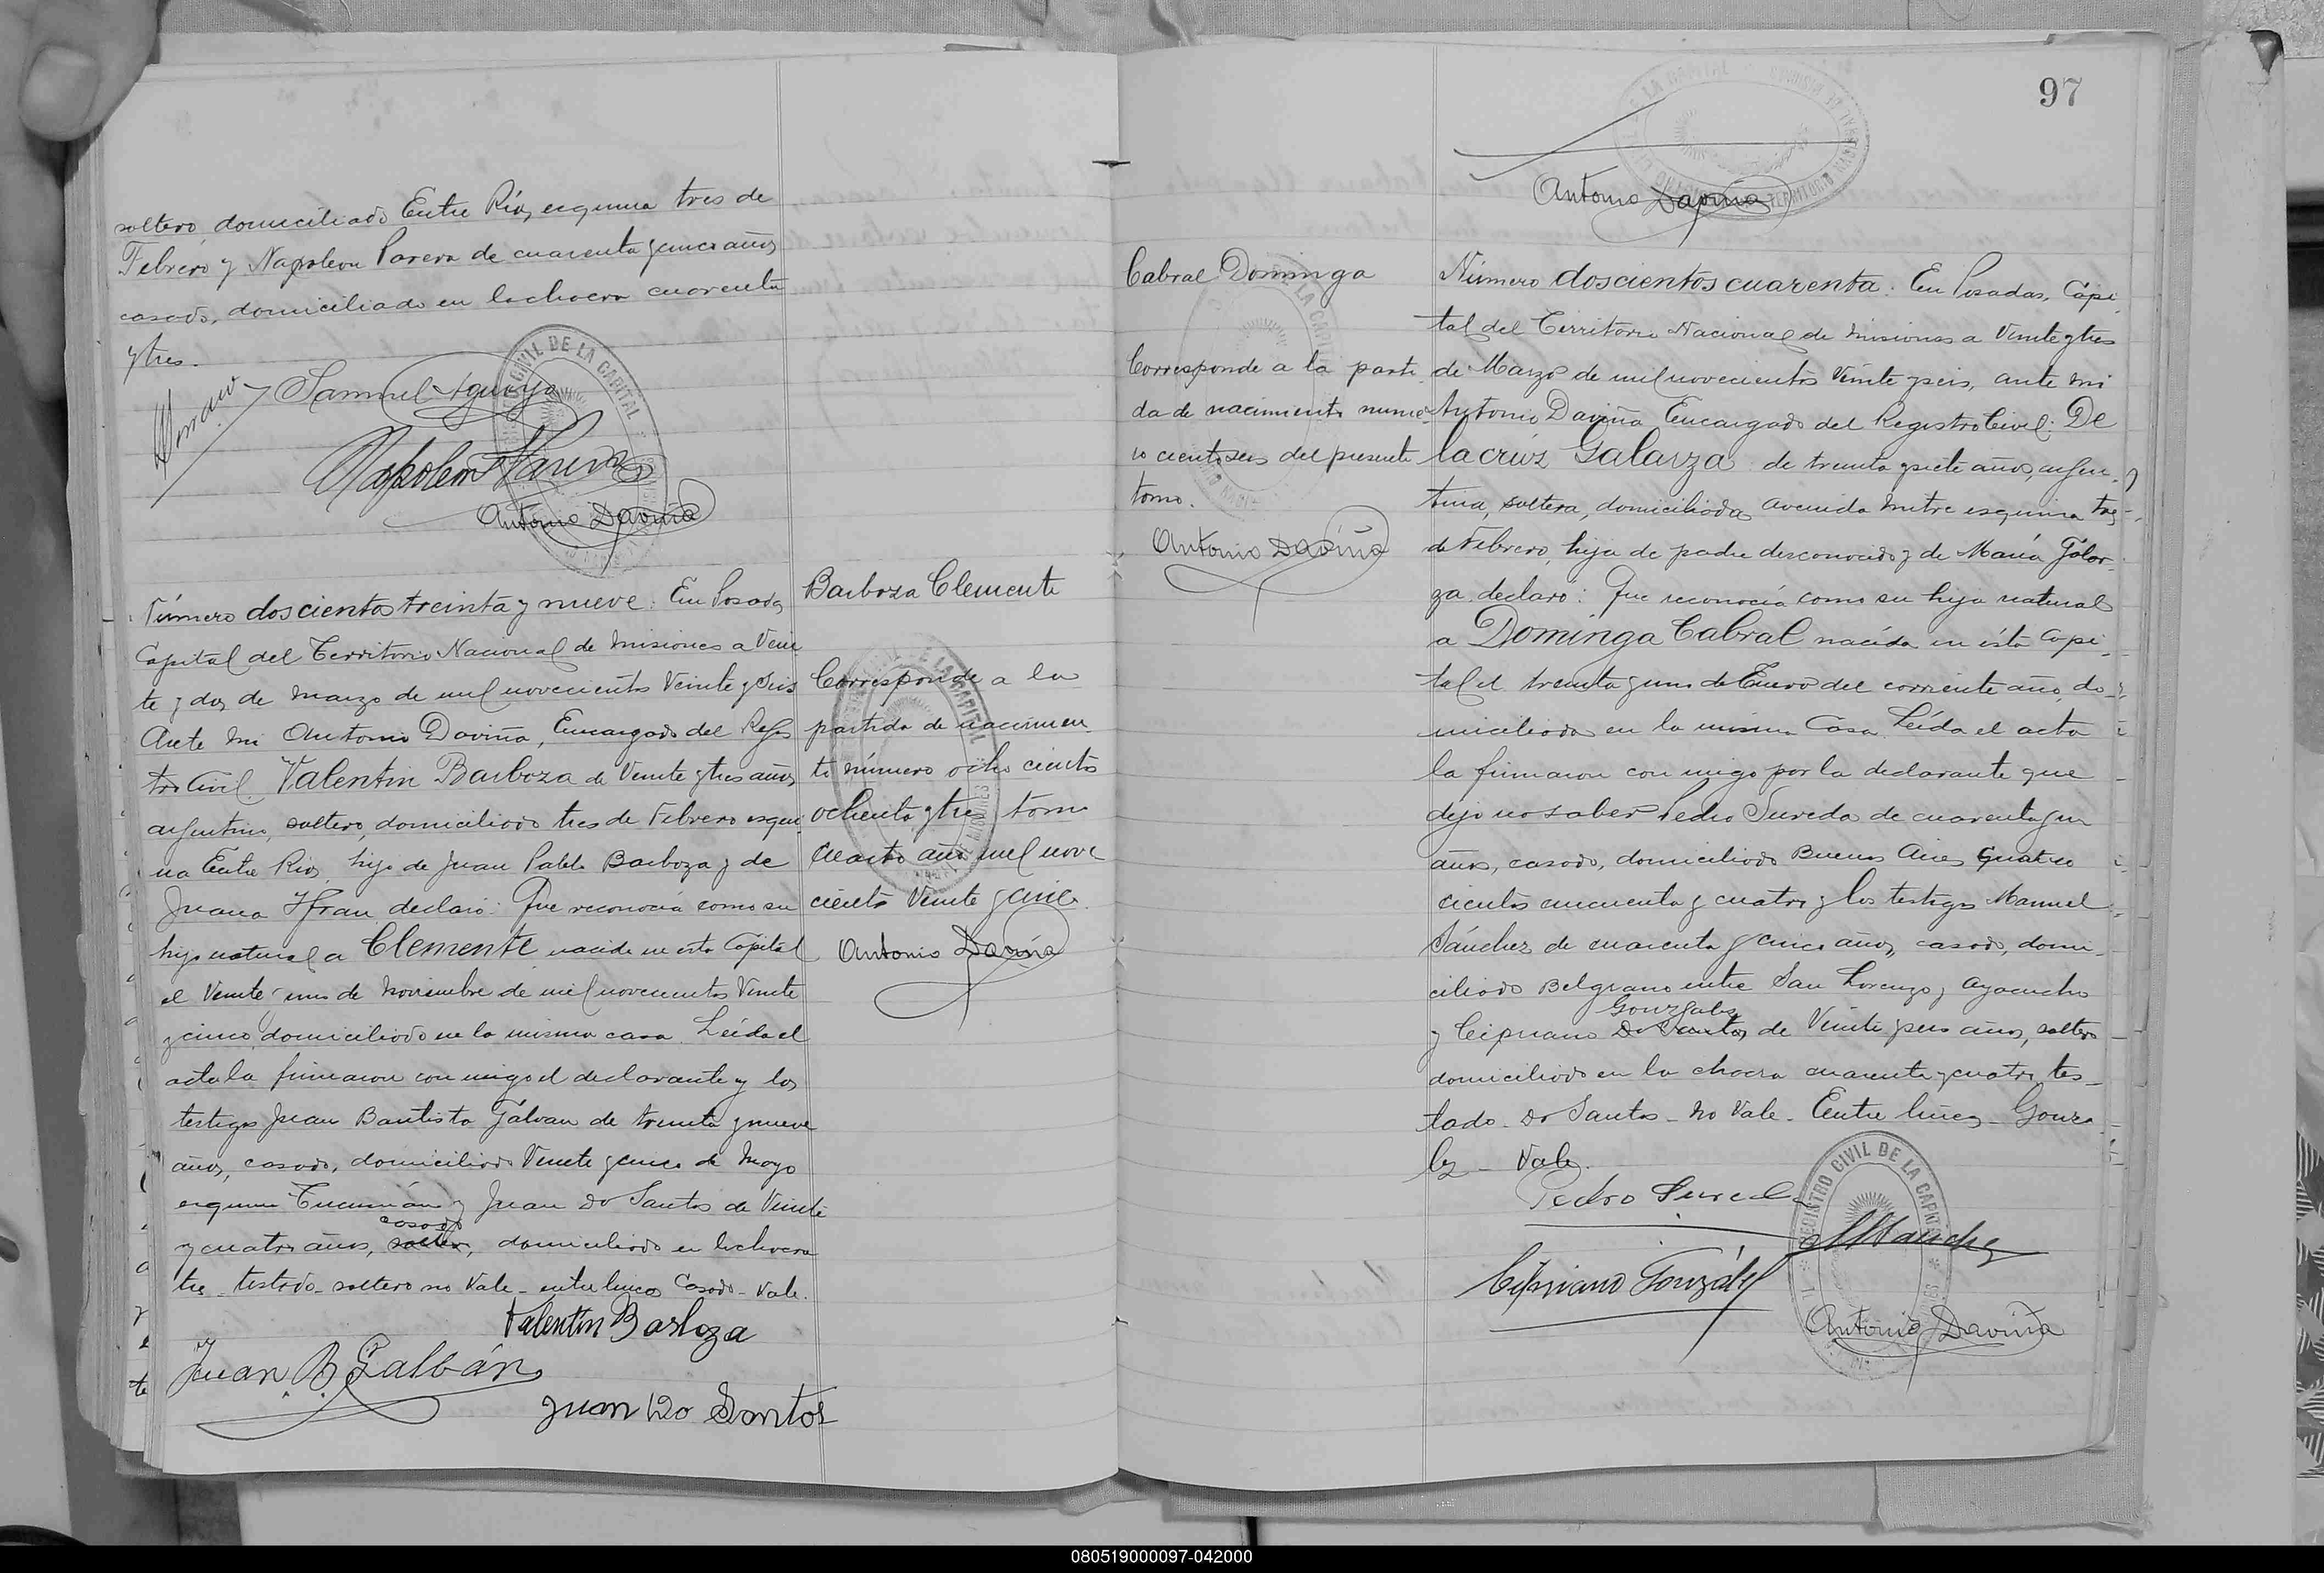 soltero, domiciliado Entre Rios, esquina tres de
Febrero y Napoleon Parera de cuarenta y cinco años
casado, domiciliado en la chacra cuarenta
y tres.
Samuel Aguayo
Napoleon Parera
Antonio Daviña
Número doscientos treinta y nueve: En Posadas
Capital del Territorio Nacional de Misiones a Vein
te y dos de Marzo de mil novecientos Veinte y Seis
Ante mi Antonio Daviña, Encargado del Regis
tro Civil. Valentin Barboza de Veinte y tres años,
argentino, soltero, domiciliado tres de Febrero esqui
na Entre Rios, hijo de Juan Pablo Barboza y de
Juana Ifran declaró: Que reconocía como su
hijo natural a Clemente nacido en esta Capital
el Veinte y uno de Noviembre de mil novecientos Veinte
y cinco, domiciliado en la misma casa. Leída el
acta la firmaron con migo el declarante y los
testigos Juan Bautista Gálvan de treinta y nueve
años, casado, domiciliado Veinte y cinco de Mayo
esquina Tucumán y Juan Do Santos de Veinte
casado
y cuatro años, soltero, domiciliado en la chacra
tres - testado - soltero no Vale - entre lineas Casado - Vale.
Valentin Barboza
Juan B. Galbán
Juan Do Santos
Barboza Clemente
Corresponde a la
partida de nacimien
to número ocho cientos
ochenta y tres tomo
cuarto año mil nove
cientos Veinte y cinco.
Antonio Daviña
97
Antonio Daviña
Cabral Dominga
Corresponde a la parti
da de nacimiento nume
ro ciento seis del presente
tomo.
Antonio Daviña
Número doscientos cuarenta: En Posadas, Capi
tal del Territorio Nacional de Misiones a Veinte y tres
de Marzo de mil novecientos Veinte y seis, ante mi
Antonio Daviña Encargado del Registro Civil: De
la cruz Galarza de treinta y siete años, argen
tina, soltera, domiciliada avenida Mitre esquina tres
de Febrero, hija de padre desconocido y de María Gálar
za declaró: Que reconocía como su hija natural
a Dominga Cabral nacida en ésta Capi
tal el treinta y uno de Enero del corriente año, do
miciliada en la misma Casa. Leída el acta
la firmaron con migo por la declarante que
dijo no saber Pedro Sureda de cuarenta y un
años, casado, domiciliado Buenos Aires cuatro
cientos cincuenta y cuatro y los testigos Manuel
Sánchez de cuarenta y cinco años, casado, domi
ciliado Belgrano entre San Lorenzo y Ayacucho
Gonzales
y Cipriano Do Santos de Veinte y seis años, soltero
domiciliado en la chacra cuarenta y cuatro, tes
tado - Do Santos - No Vale - Entre lineas - Gonza
les - Vale.
Pedro Sureda
M Sanchez
Cipriano González
Antonio Daviña
REGISTRO CIVIL DE LA CAPITAL
080519000097-042000